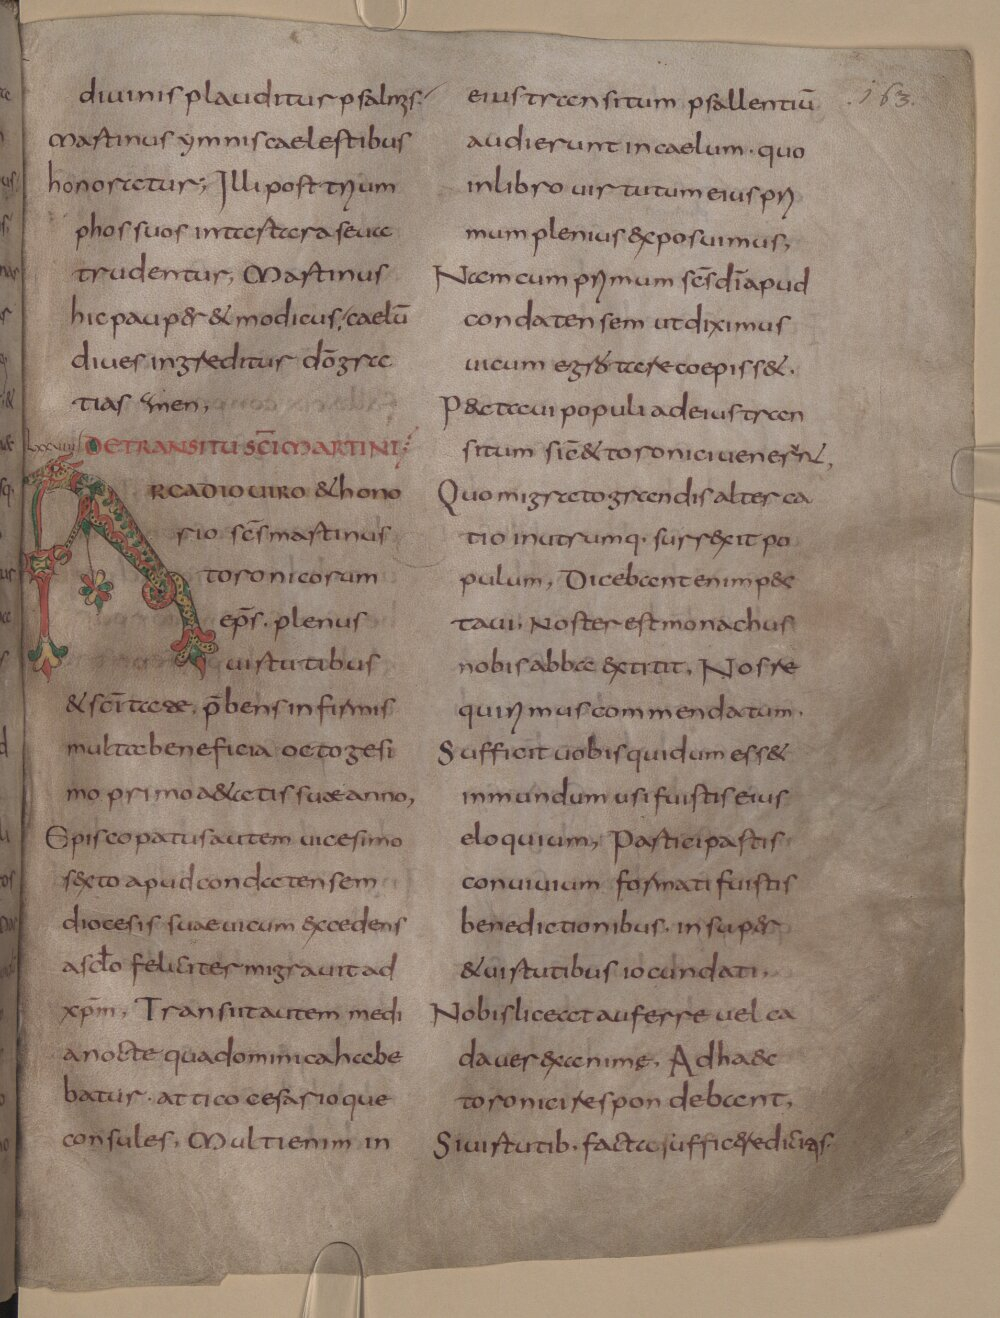 divinis plauditur psalmis.
Martinus ymnis caelestibus
honoratur; Illi post trium
phos suos in tartara saeva
trudentur, Martinus
hic pauper & modicus, caelū
dives ingreditur dō gra
tias amen,
LXXVIIII DE TRANSITU SC̄I MARTINI;
ARCADIO VIRO & hono
rio sc̄s martinus
toronicorum
ep̄s. plenus
virtutibus
& sc̄itate. p̄bens infirmis
multa beneficia octogesi
mo primo aetatis suae anno,
Episcopatus autem vicesimo
sexto apud condatensem
diocesis suae vicum excedens
a sclo feliciter migravit ad
xp̄m, Transiit autem medi
a nocte qua dominica habe
batur. attico cesarioque
consules, Multi enim in
163.
eius transitum psallentiū
audierunt in caelum. quo
in libro virtutum eius pri
mum plenius exposuimus,
Nam cum primum sc̄s dī apud
condatensem ut diximus
vicum egrotare coepisset.
Pectavi populi ad eius tran
situm sic & toronici venerunt,
Quo migrato grandis alterca
tio in utrumq. surrexit po
pulum, Dicebant enim pec
tavi, Noster est monachus
nobis abba extitit, Nos re
quirimus commendatum.
Sufficit vobis qui dum esset
in mundum usi fuistis eius
eloquium, Participastis
convivium formati fuistis
benedictionibus. insuper
& virtutibus iocundati,
Nobis liceat auferre vel ca
daver exanime, Ad haec
toronici respondebant,
Si virtutib. facta sufficere dicitis.